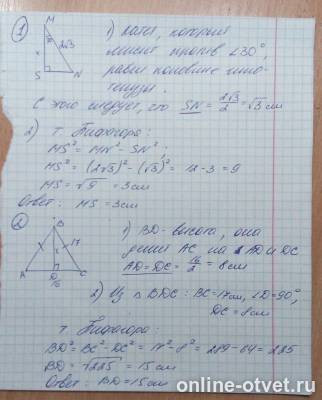 ① M
1) Катет, который
лежит против ∠30°,
равен половине гипо-
тенузы.
x 2√3
S N
С этого следует, что SN = 2√3/2 = √3 см
2) т. Пифагора:
MS² = MN² - SN²;
MS² = (2√3)² - (√3)² = 12 - 3 = 9
MS = √9 = 3см
Ответ: MS = 3см
② B
1) BD - высота, она
17
делит AC на AD и DC
A D C
AD = DC = 16/2 = 8см
16
2) Из △ BDC: BC = 17см, ∠D = 90°,
DC = 8см
т. Пифагора:
BD² = BC² - DC² = 17² - 8² = 289 - 64 = 225
BD = √225 = 15 см
Ответ: BD = 15 см
online-otvet.ru